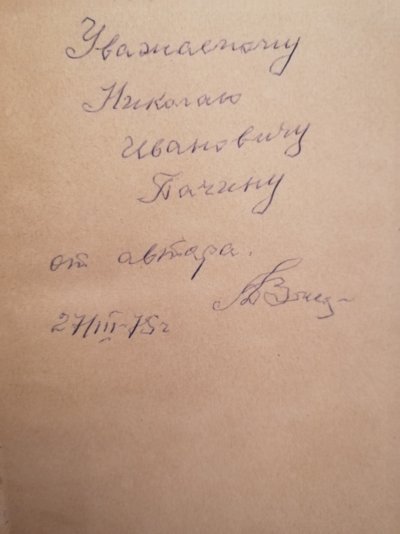 Уважаемому
Николаю
Ивановичу
Пачину
от автора.
27/III-75г